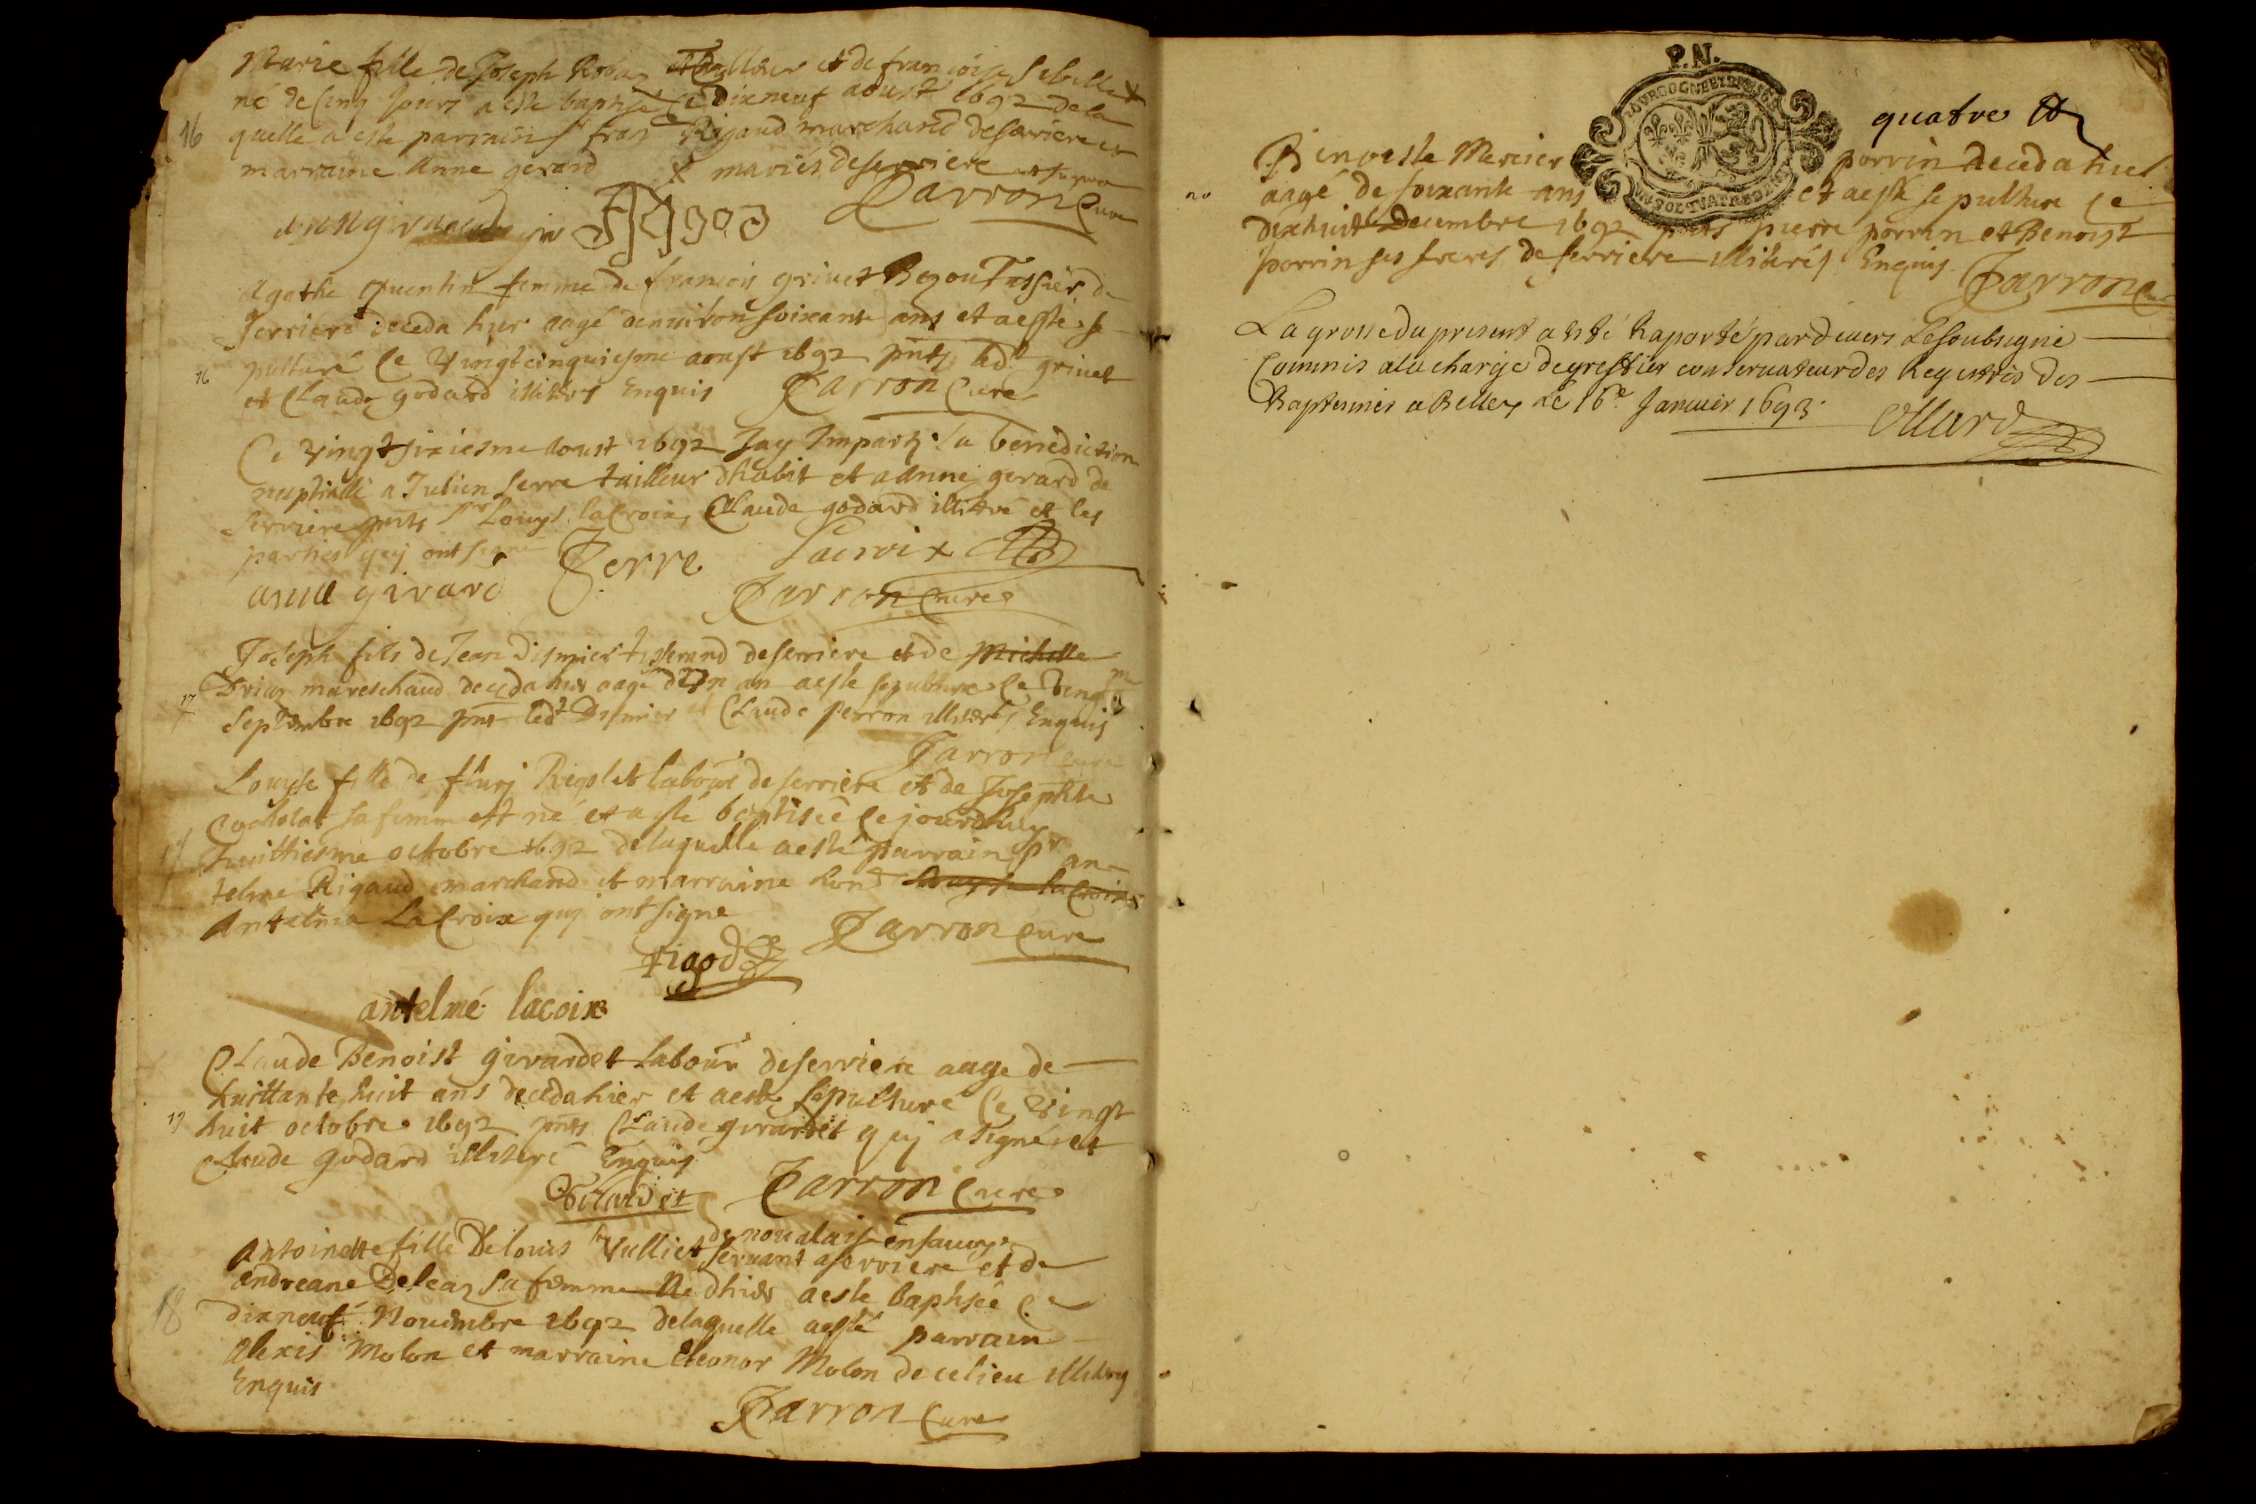 Marie fille de Joseph Robin et de françoise Sibille
né de Cinq Jours a esté baptisé Ce dixneuf aoust 1692 de la
16 quelle a este parrain Sr fran Rigaud marchand de Seriere et
marraine Anne gerard x mariés de Serriere
Rigod Parron Cure
Agathe quentin femme de francois grivet Tissier de
Serriere deceda hier aagé denviron Soixante ans et aesté se
16 pulturé Ce Vingtcinquiesme aoust 1692 pnts led grivet
et Claude godard illiterés Enquis Parron Cure
Ce vingt sixiesme aoust 1692 Jay Imparti la benediction
nuptialle a Julien Serre tailleur dhabit et a anne gerard de
Serriere pnts Sr Louys la Croix, Claude godard illitéré et les
parties quj ont signé
anne girard Serre Lacroix
Parron Cure
Joseph fils de Jean Dismier tisserand de Serriere et de Michelle
17 mareschaud deceda hier aagé dun an aesté sepulture Ce
Septembre 1692 pnt led Dismier et Claude perron illiterés Enquis
Parron cure
Louyse fille de fleurj Rigolet labour de serriere et de Josephte
sa femme est né et a esté baptisée Cejourdhuy
17 huittiesme octobre 1692 delaquelle aesté parrain Sr an-
telme Rigaud marchand et marraine hon Louyse la Croix
Antelma La Croix quj ont signe
Parron Cure
rigod
antelmé lacoix
Claude Benoist girardet Labour de serriere aage de
huittante huit ans deceda hier et aesté sepulturé Ce Vingt
17 huit octobre 1692 pnts Claude girardet quj a signé et
Claude godard illiteré Enquis
Girardet Parron Cure
de noualaise en sauoye
Antoinette fille De louis Vulliet servant a serriere et de
andreane Deleaz sa femme Né dhier aeste baptisée Ce
18 dixneuf Nouembre 1692 delaquelle aesté parrain
Alexis Molon et marraine Eleonor Molon de ce lieu illiterés
Enquis
Parron Cure
P.N.
quatre
Benoiste Mercier porrin deceda hier
20 aagé de soixante ans et aesté sepulture Ce
dixhuit Decembre 1692 pnts pierre porrin et Benoist
porrin ses freres de serriere illiterés Enquis Parron Cu
La grosse du present a esté Raporté pardeuers Le soubsigné
Commis ala charge de greffier conservateur des Registres des
Baptesmes a Belley Le 16e Januier 1693 Ollard